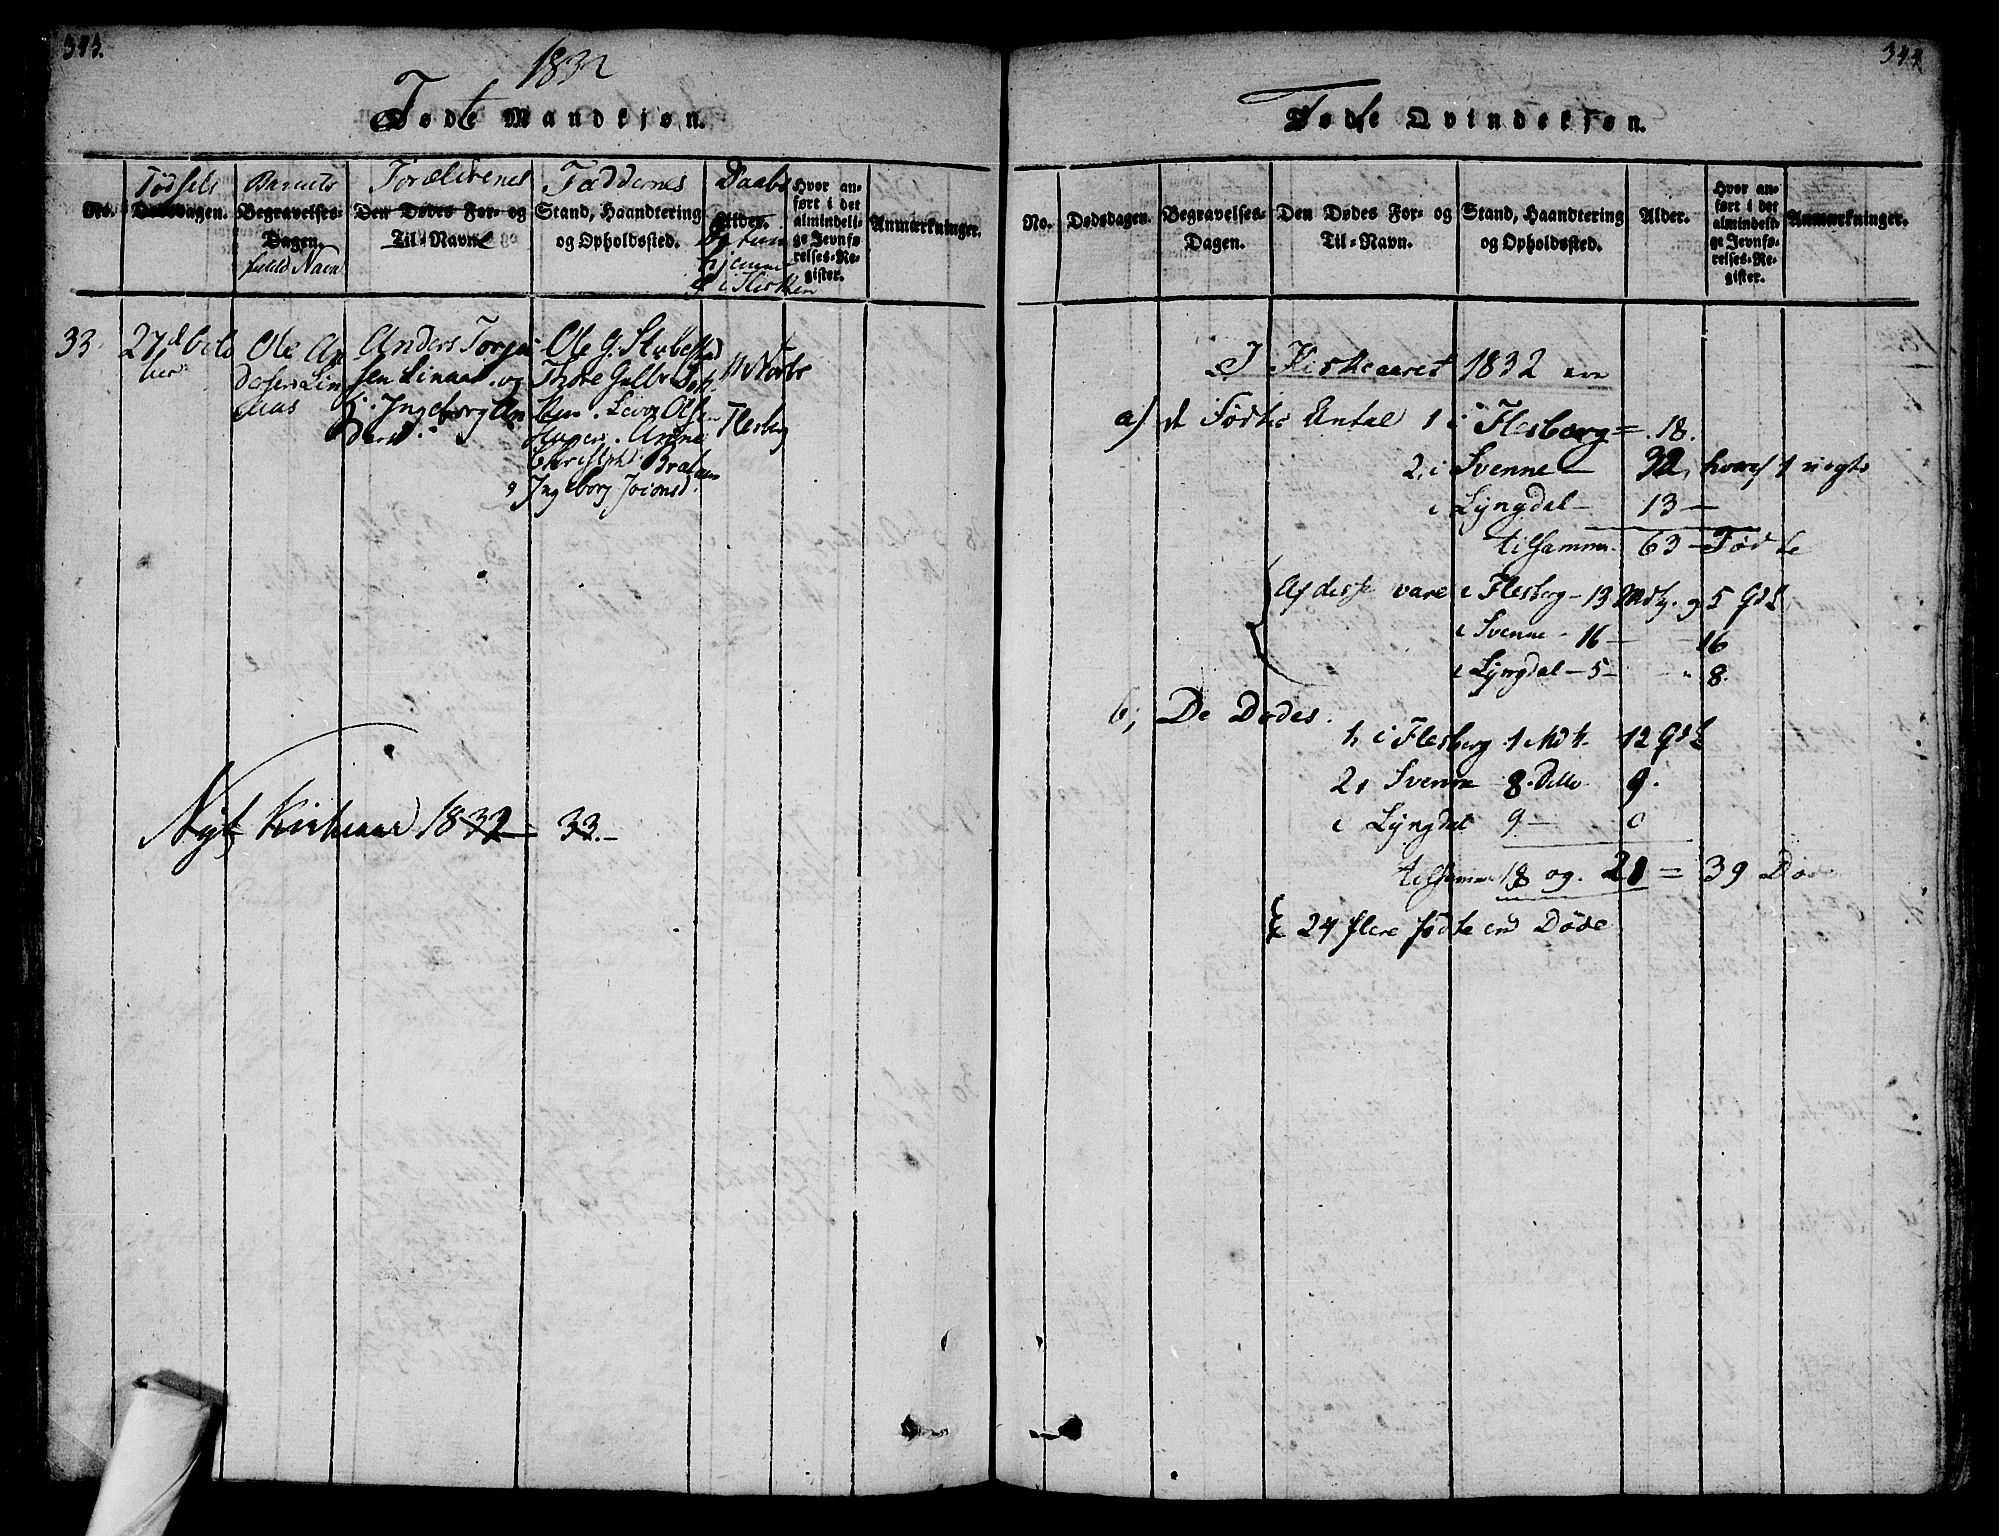 343.
1832
Fødte Mandkjøn.
No.
Fødsels
Dødsdagen.
Barnets
Begravelses-
Dagen.
fulde Navn
Forældrenes
Den Dødes For- og
Til-Navn
Faddernes
Stand, Haandtering
og Opholdssted.
Daabs
Alder.
hjemme
i Kirken
Hvor an-
ført i det
almindeli-
ge Jevnfø-
relses-Re-
gister.
Anmærkninger.
33
27d
Ole An
dersen Lin
aas
Anders Torge
sen Linaas og
K. Ingeborg An
dersd.
Ole G. Stubestad
Thore Gulbr
Levor Olsen
Anne
Christph. Braten
g Ingeborg
11 Novbr
Flesberg
Nyt Kirkeaar 1832 33.-
344
Fødte Qvindekjøn.
No.
Dødsdagen.
Begravelses-
Dagen.
Den Dødes For- og
Til-Navn.
Stand, Haandtering
og Opholdssted.
Alder.
Hvor an-
ført i det
almindeli-
ge Jevnfø-
relses-Re-
gister.
Anmærkninger.
I Kirkeaaret 1832 ere
a) d Fødtes Antal 1 i Flesberg = 18.
2, i Svenne - 32, hvoraf 1 uegte
i Lyngdal - 13 -
tilsammen 63 - Fødte
Af disse vare i Flesberg - 13 Mdk. g 5 Qdk
i Svenne - 16 - 16
i Lyngdal - 5 - " 8.
b, De Dødes.
1, i Flesberg 1 Mdk. 12 Qdk
2, Svenne 8. Ditto 9.
i Lyngdal 9 - 0
tilsammen 18 og 21 = 39 Døde
24 flere fødte end Døde